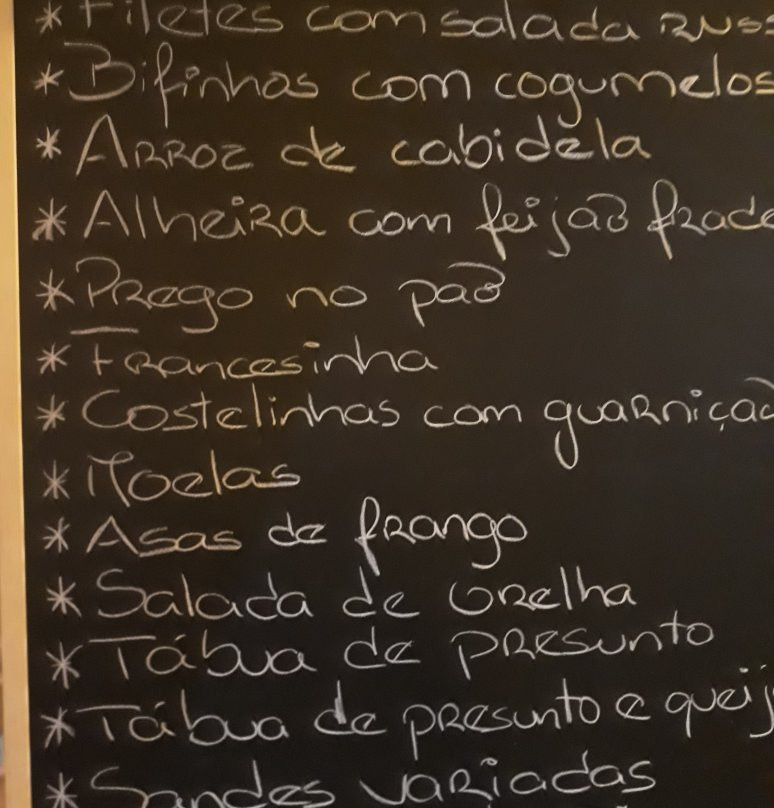 * Filetes com salada Russ
* Bifinhas com cogumelos
* Arroz de cabidela
* Alheira com feijão frade
* Prego no pão
* Francesinha
* Costelinhas com guarnição
* Moelas
* Asas de frango
* Salada de Orelha
* Tábua de presunto
* Tábua de presunto e queij
* Sandes variadas